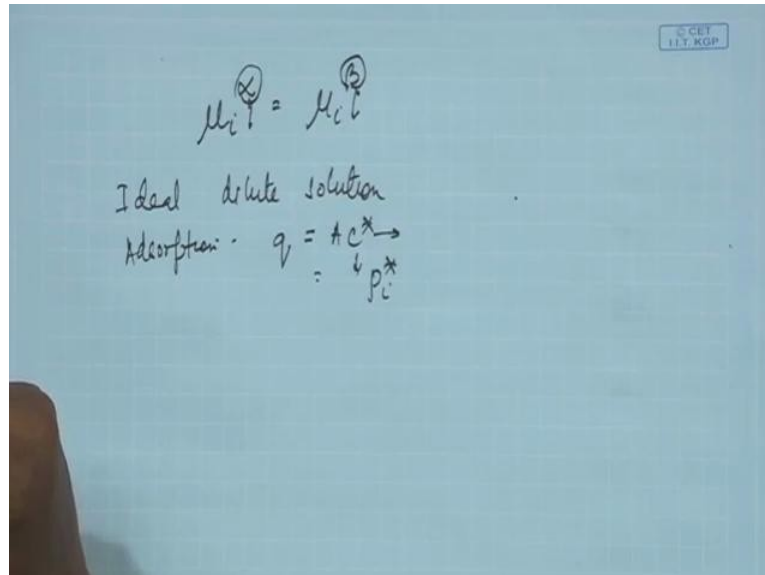 © CET
I.I.T. KGP
μi α = μi β
Ideal dilute solution
Adsorption - q = A C* →
= ↓ Pi*